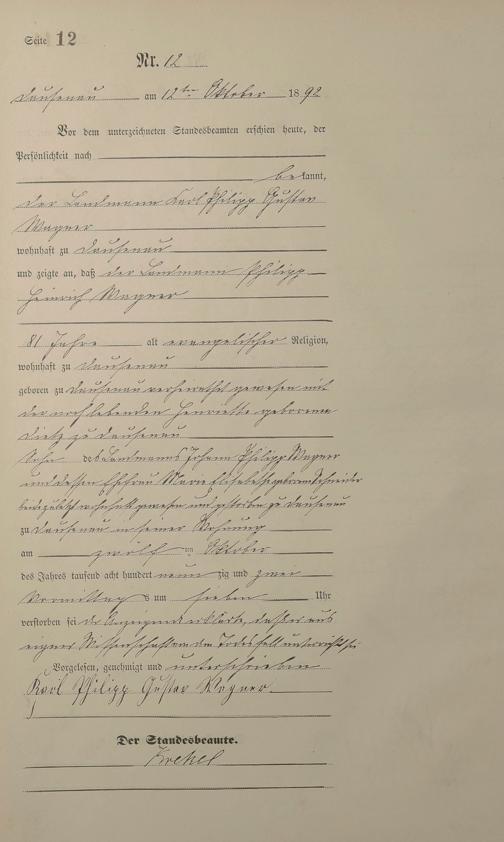 Seite 12
Nr. 12
Dausenau am 12ten Oktober 1892
Vor dem unterzeichneten Standesbeamten erschien heute, der
Persönlichkeit nach
bekannt,
der Landmann Karl Philipp Gustav
Wagner
wohnhaft zu Dausenau
und zeigte an, daß der Landmann Philipp
Heinrich Wagner
81 Jahre alt evangelischer Religion,
wohnhaft zu Dausenau
geboren zu Dausenau verheirathet gewesen mit
der noch lebenden Henriette geborene
Dietz zu Dausenau
Sohn des Landmanns Johann Philipp Wagner
und dessen Ehefrau Marie Elisabetha geborene Schneider
beide zuletzt wohnhaft gewesen und gestorben zu Dausenau
zu Dausenau in seiner Wohnung
am zwölften Oktober
des Jahres tausend acht hundert neunzig und zwei
Vormittags um sieben Uhr
verstorben sei der Anzeigende erklärte, daß er aus
eigener Wissenschaft von dem Todesfall unterrichtet sei
Vorgelesen, genehmigt und unterschrieben
Karl Philipp Gustav Wagner
Der Standesbeamte.